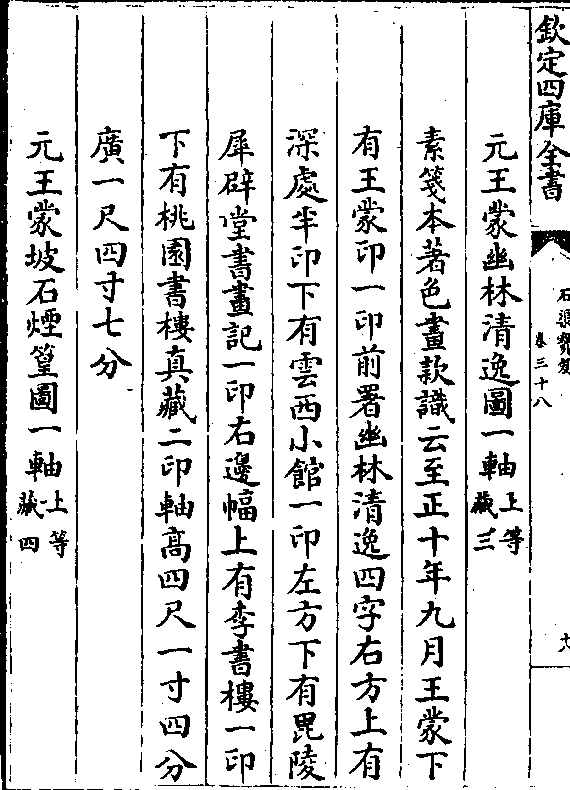 欽定四庫全書
石渠寶笈
卷三十八
元王蒙幽林清逸圖一軸上等藏三
素箋本著色畫款識云至正十年九月王蒙下
有王蒙印一印前署幽林清逸四字右方上有
深處半印下有雲西小館一印左方下有毘陵
犀辟堂書畫記一印右邊幅上有李書樓一印
下有桃園書樓真藏二印軸高四尺一寸四分
廣一尺四寸七分
元王蒙坡石煙篁圖一軸上等藏四